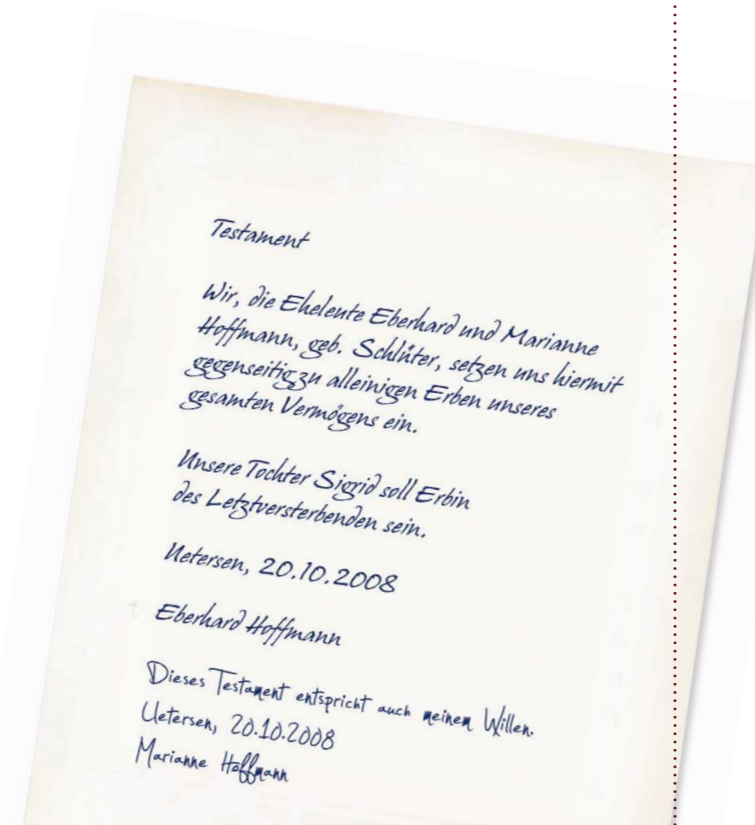 Testament
Wir, die Eheleute Eberhard und Marianne
Hoffmann, geb. Schlüter, setzen uns hiermit
gegenseitig zu alleinigen Erben unseres
gesamten Vermögens ein.
Unsere Tochter Sigrid soll Erbin
des Letztversterbenden sein.
Uetersen, 20.10.2008
Eberhard Hoffmann
Dieses Testament entspricht auch meinem Willen.
Uetersen, 20.10.2008
Marianne Hoffmann